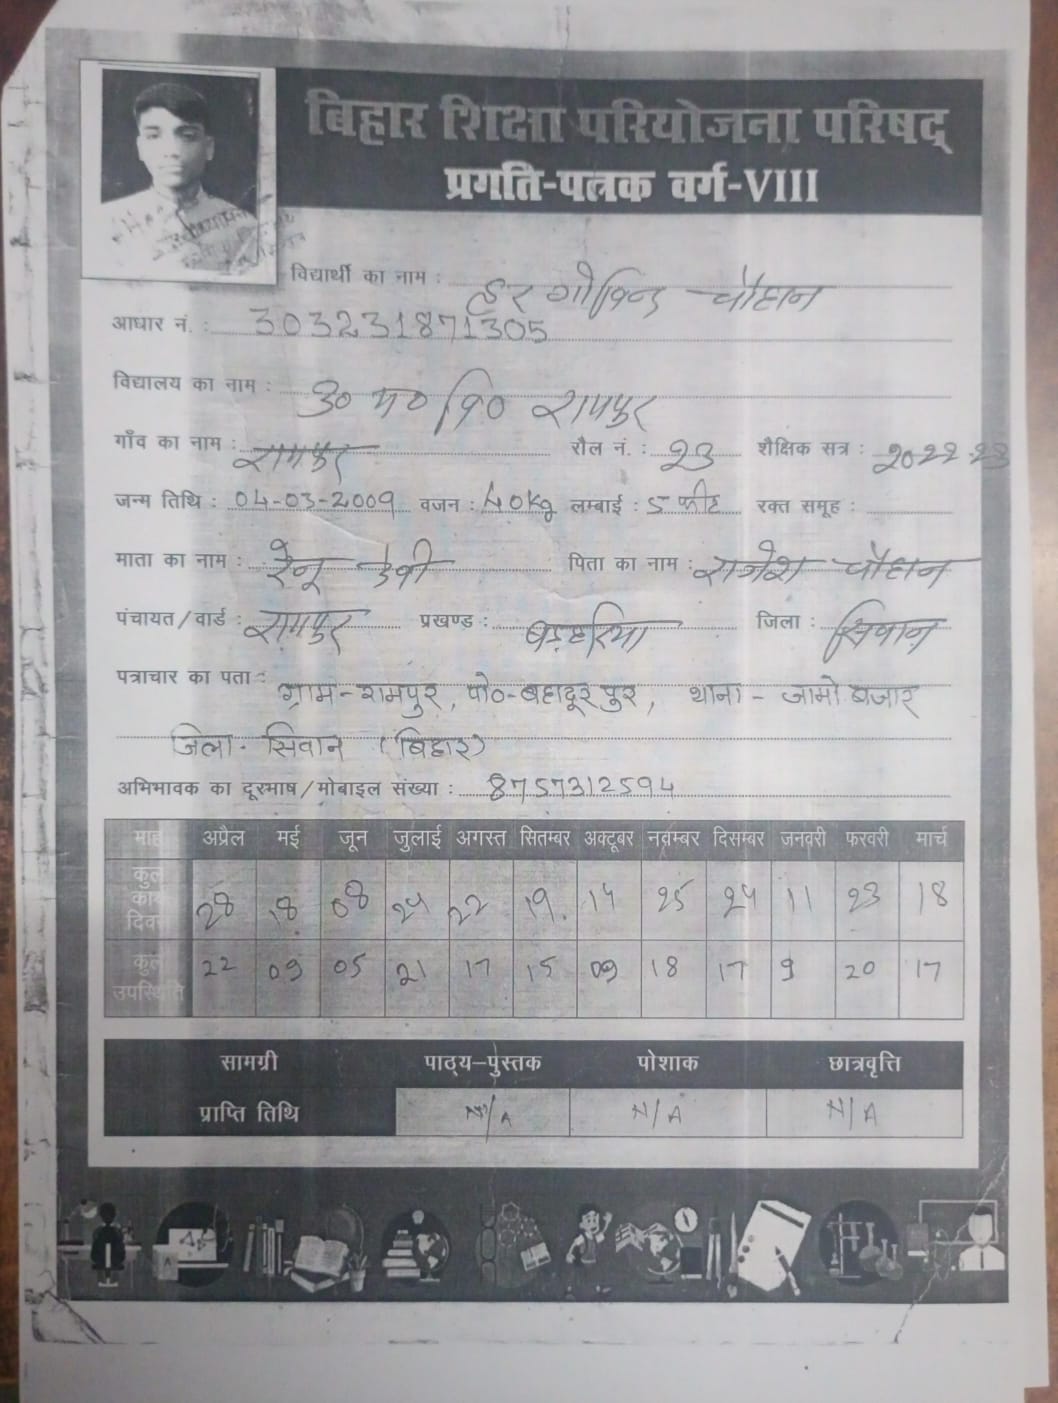 बिहार शिक्षा परियोजना परिषद्
प्रगति-पत्रक वर्ग-VIII
विद्यार्थी का नाम : हर गोविन्द चौहान
आधार नं. : 303231871305
विद्यालय का नाम : उ० म० वि० रामपुर
गाँव का नाम : रामपुर रौल नं. : 23 शैक्षिक सत्र : 2022-23
जन्म तिथि : 04-03-2009 वजन : 40kg लम्बाई : 5 फीट रक्त समूह :
माता का नाम : रेनू देवी पिता का नाम : राजेश चौहान
पंचायत/वार्ड : रामपुर प्रखण्ड : बड़हरिया जिला : सिवान
पत्राचार का पता : ग्राम-रामपुर, पो०-बहादूरपुर, थाना - जामो बजार
जिला- सिवान (बिहार)
अभिभावक का दूरभाष/मोबाइल संख्या : 8757312594
माह अप्रैल मई जून जुलाई अगस्त सितम्बर अक्टूबर नवम्बर दिसम्बर जनवरी फरवरी मार्च
कुल कार्य दिवस 28 18 08 24 22 19 14 25 24 11 23 18
कुल उपस्थिति 22 09 05 21 17 15 09 18 17 9 20 17
सामग्री पाठ्य-पुस्तक पोशाक छात्रवृत्ति
प्राप्ति तिथि N/A N/A N/A